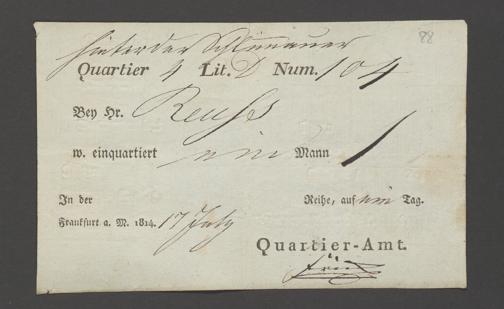 hinter der Schlimmauer
Quartier 4 Lit. D Num. 104
Bey Hr. Reuss
w. einquartiert ein Mann 1
In der Reihe, auf ein Tag.
Frankfurt a. M. 1814. 17 July
Quartier-Amt.
88